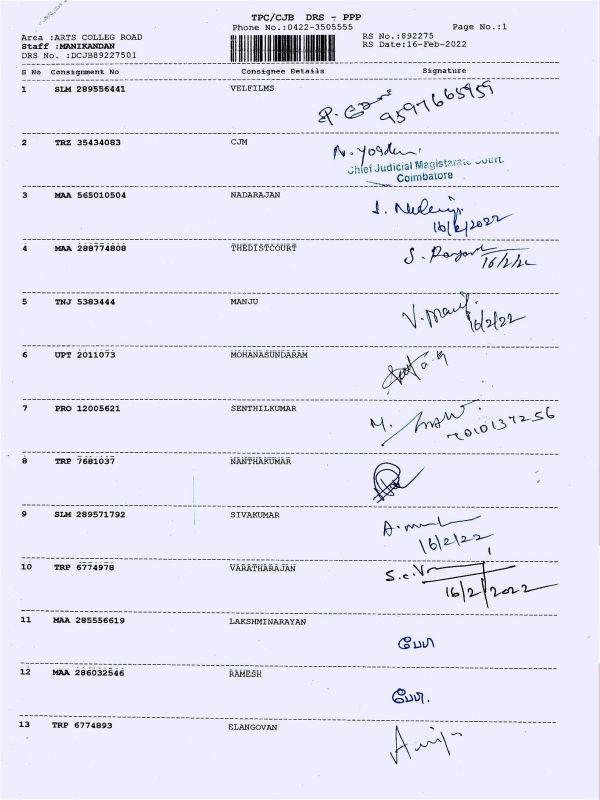 TPC/CJB DRS - PPP
Phone No.:0422-3505555
Page No.:1
Area :ARTS COLLEG ROAD
RS No.:892275
Staff :MANIKANDAN
RS Date:16-Feb-2022
DRS No. :DCJB89227501
S No Consignment No Consignee Details Signature
1 SLM 289556441 VELFILMS
9597665959
2 TRZ 35434083 CJM
Chief Judicial Magistarate Court
Coimbatore
3 MAA 565010504 NADARAJAN
16/2/2022
4 MAA 288774808 THEDISTCOURT
16/2/22
5 TNJ 5383444 MANJU
16/2/22
6 UPT 2011073 MOHANASUNDARAM
7 PRO 12005621 SENTHILKUMAR
7010137256
8 TRP 7681037 NANTHAKUMAR
9 SLM 289571792 SIVAKUMAR
16/2/22
10 TRP 6774978 VARATHARAJAN
16/2/2022
11 MAA 285556619 LAKSHMINARAYAN
12 MAA 286032546 RAMESH
13 TRP 6774893 ELANGOVAN